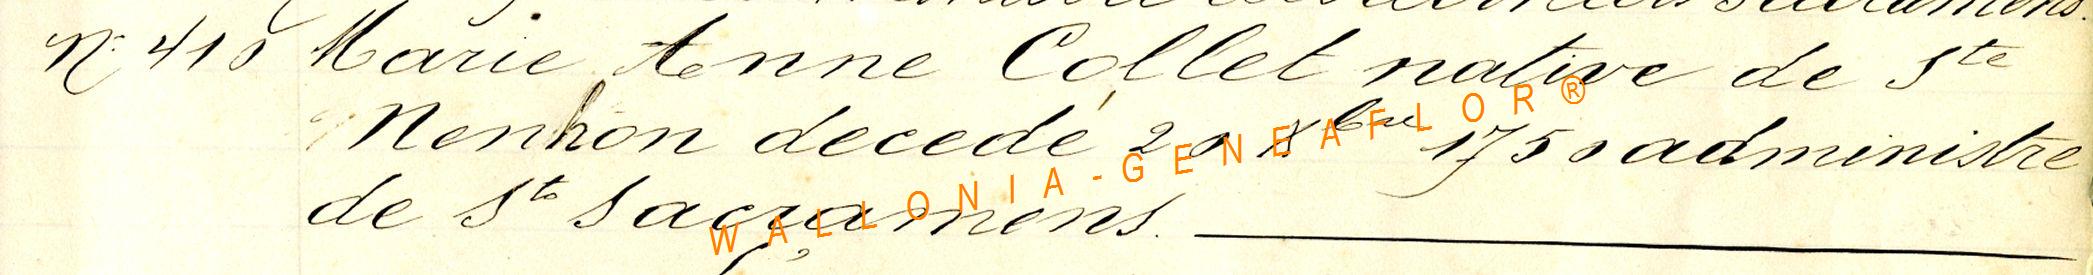 sacramens.
N° 410 Marie Anne Collet native de Ste
Nenhon decedé 20 8bre 1750 administre
de Sts Sacramens.
WALLONIA-GENEAFLOR®